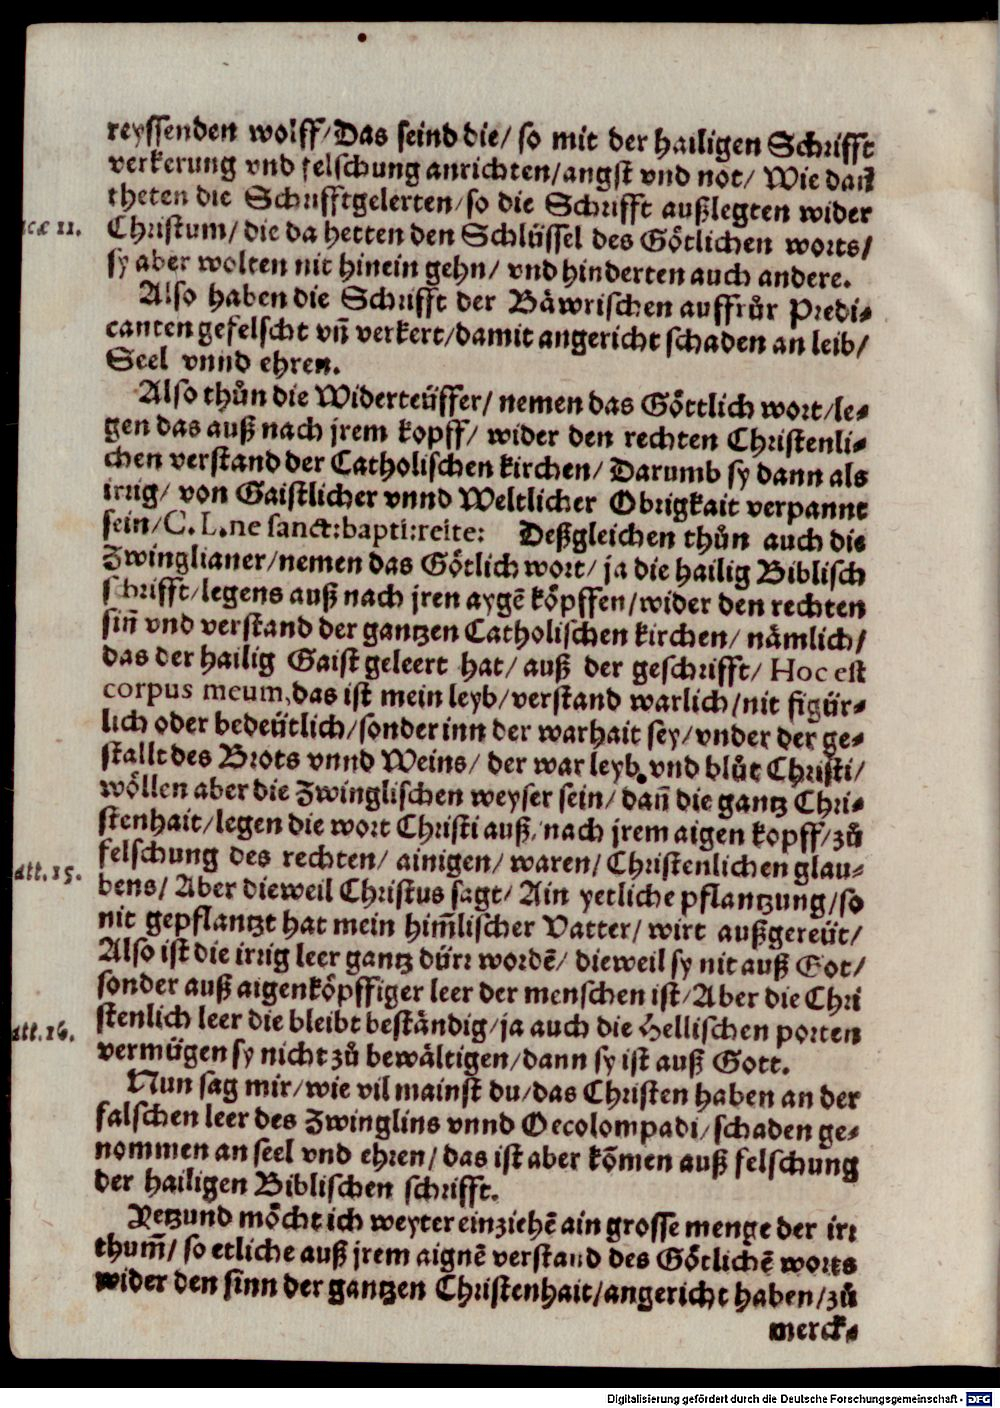 reyssenden wolff/Das seind die/ so mit der hailigen Schrifft
verkerung vnd felschung anrichten/angst vnd not/ Wie dañ
theten die Schrifftgelerten/so die Schrifft außlegten wider
Christum/ die da hetten den Schlüssel des Götlichen worts/
cæ 11.
sy aber wolten nit hinein gehn/ vnd hinderten auch andere.
Also haben die Schrifft der Bäwrischen auffrůr Predi-
canten gefelscht vñ verkert/damit angericht schaden an leib/
Seel vnnd ehren.
Also thůn die Widerteüffer/ nemen das Göttlich wort/le-
gen das auß nach jrem kopff/ wider den rechten Christenli-
chen verstand der Catholischen kirchen/ Darumb sy dann als
irrig/ von Gaistlicher vnnd Weltlicher Obrigkait verpannt
sein/C. L. ne sanct:bapti:reite: Deßgleichen thůn auch die
Zwinglianer/nemen das Götlich wort/ ja die hailig Biblisch
schrifft/legens auß nach jren aygē köpffen/wider den rechten
siñ vnd verstand der gantzen Catholischen kirchen/ nämlich/
das der hailig Gaist geleert hat/ auß der geschrifft/ Hoc est
corpus meum, das ist mein leyb/verstand warlich/nit figür-
lich oder bedeütlich/sonder inn der warhait sey/vnder der ge-
stallt des Brots vnnd Weins/ der war leyb vnd blůt Christi/
wöllen aber die Zwinglischen weyser sein/ dañ die gantz Chri-
stenhait/legen die wort Christi auß/nach jrem aigen kopff/zů
felschung des rechten/ ainigen/ waren/ Christenlichen glau-
att. 15.
bens/ Aber dieweil Christus sagt/ Ain yetliche pflantzung/so
nit gepflantzt hat mein him̃lischer Vatter/ wirt außgereüt/
Also ist die irrig leer gantz dürr wordē/ dieweil sy nit auß Got/
sonder auß aigenköpffiger leer der menschen ist/Aber die Chri
stenlich leer die bleibt beständig/ja auch die Hellischen porten
att. 16.
vermügen sy nicht zů bewältigen/dann sy ist auß Gott.
Nun sag mir/wie vil mainst du/das Christen haben an der
falschen leer des Zwinglins vnnd Oecolompadi/schaden ge-
nommen an seel vnd ehren/ das ist aber kōmen auß felschung
der hailigen Biblischen schrifft.
Yetzund möcht ich weyter einziehē ain grosse menge der irr
thum̃/ so etliche auß jrem aignē verstand des Götlichē worts
wider den sinn der gantzen Christenhait/angericht haben/zů
merck-
Digitalisierung gefördert durch die Deutsche Forschungsgemeinschaft - DFG